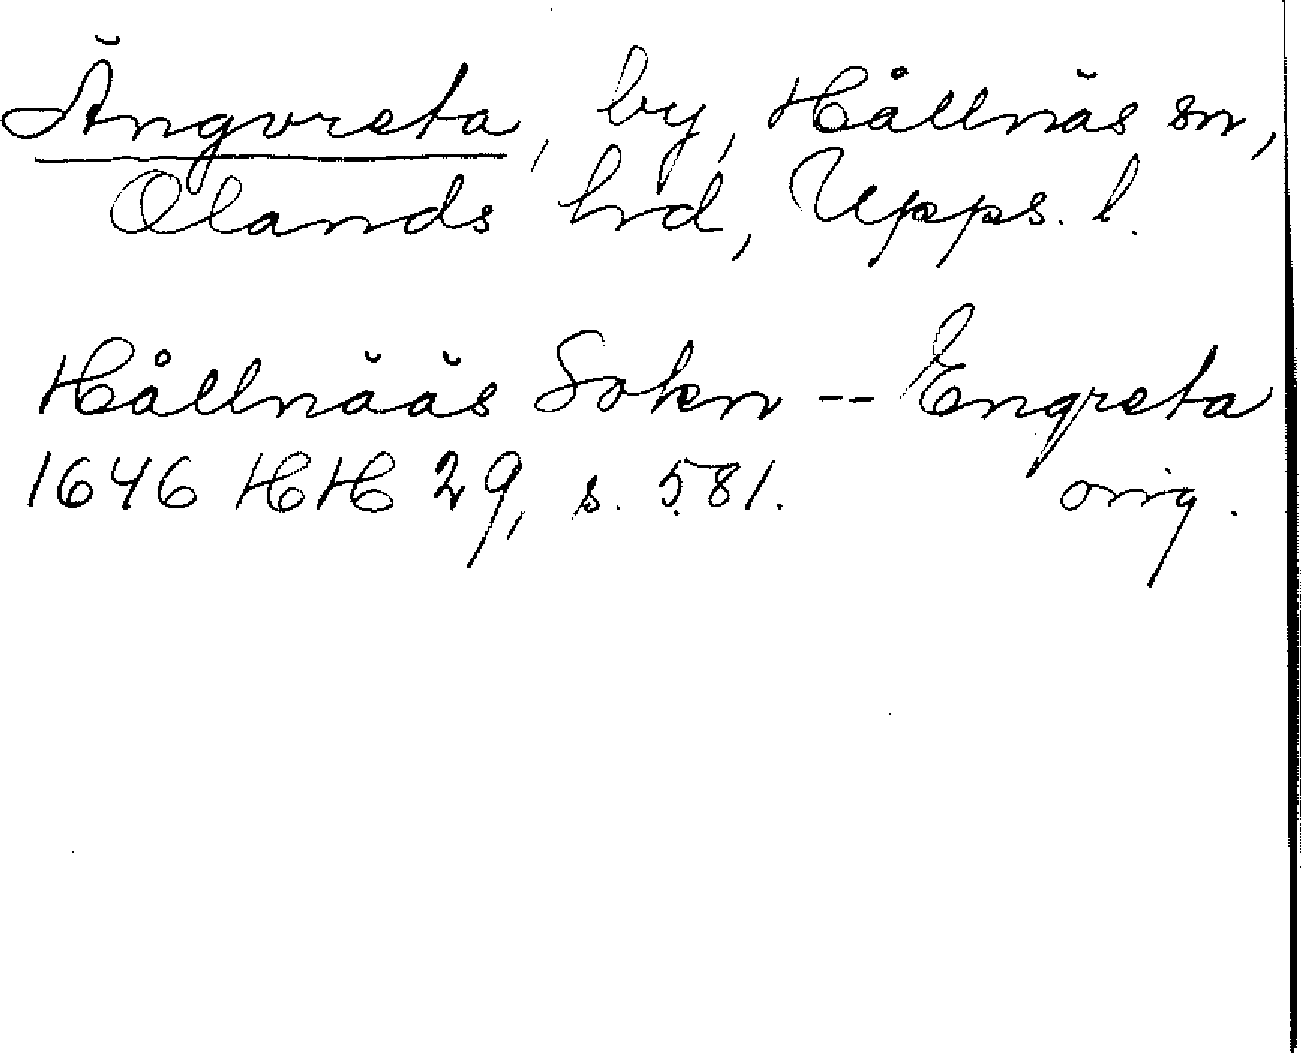 Ängvreta, by, Hållnäs sn,
Olands hrd, Upps. l.
Hållnääs Sokn -- Engreta
1646 HH 29, s. 581. orig.